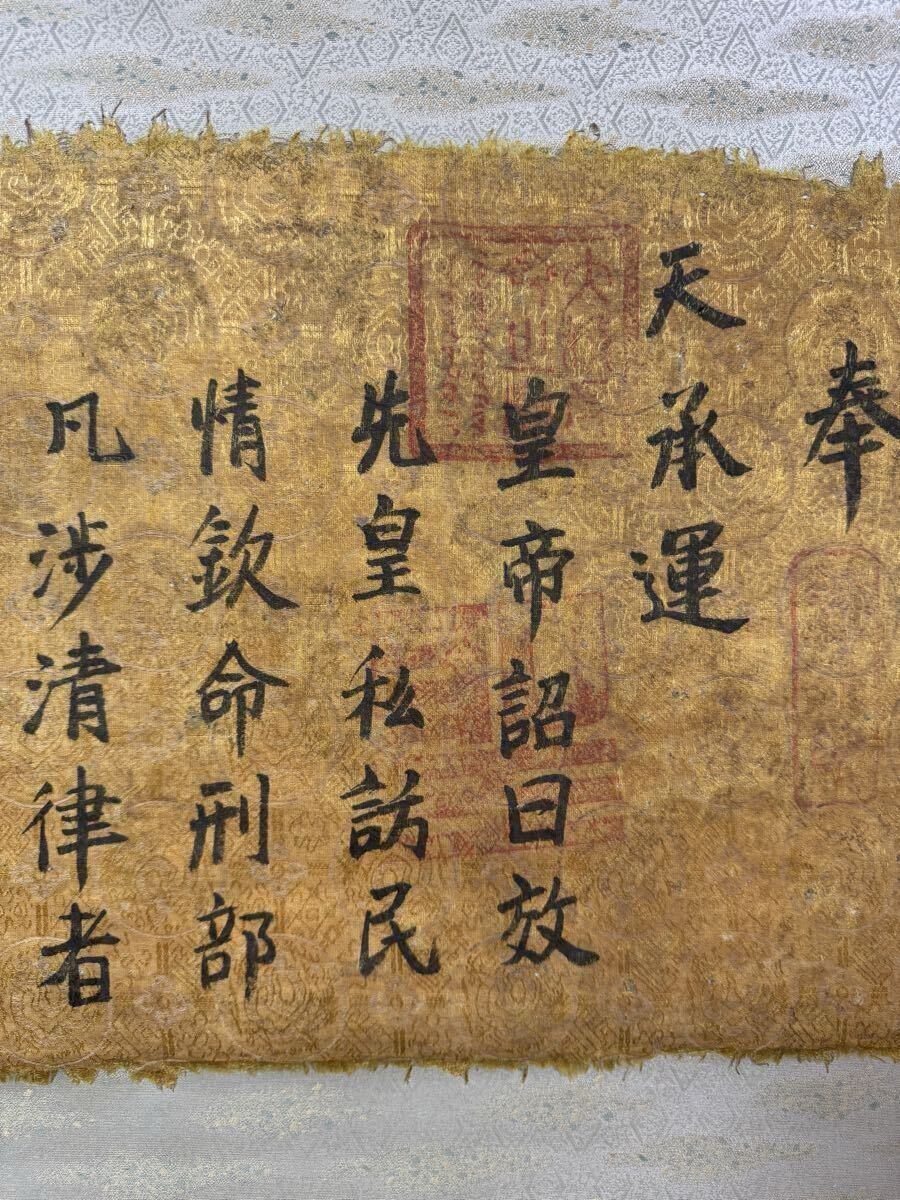 奉
天承運
皇帝詔曰效
先皇私訪民
情欽命刑部
凡涉清律者